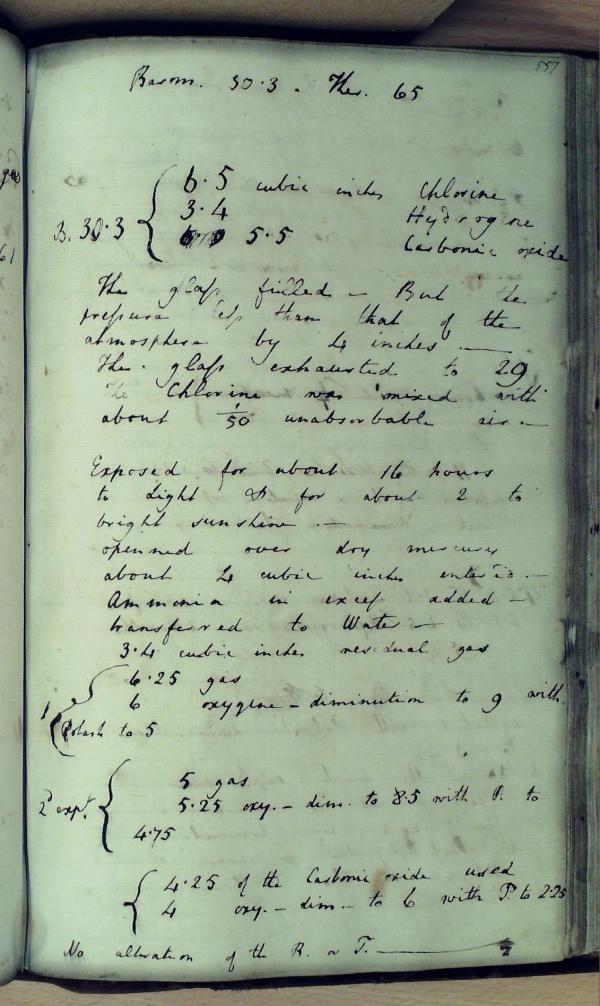 557
Barom. 30.3. Ther. 65
6.5 cubic inches Chlorine
3.4 Hydrogene
B. 30.3
5.5 Carbonic oxide
The glass filled - But the
pressure less than that of the
atmosphere by 4 inches -
The glass exhausted to 29
The Chlorine was mixed with
about 1/50 unabsorbable air -
Exposed for about 16 hours
to Light & for about 2 to
bright sunshine. -
openned over dry mercury
about 4 cubic inches entered. -
Ammonia in excess added -
transferred to Water -
3.4 cubic inches residual gas
6.25 gas
1 6 oxygene - diminution to 9 with
Potash to 5
5 gas
2d expt. 5.25 oxy. - dim. to 8.5 with P. to
4.75
4.25 of the Carbonic oxide used
4 oxy. - dim. - to 6 with P. to 2.25
No alteration of the B. or T. -